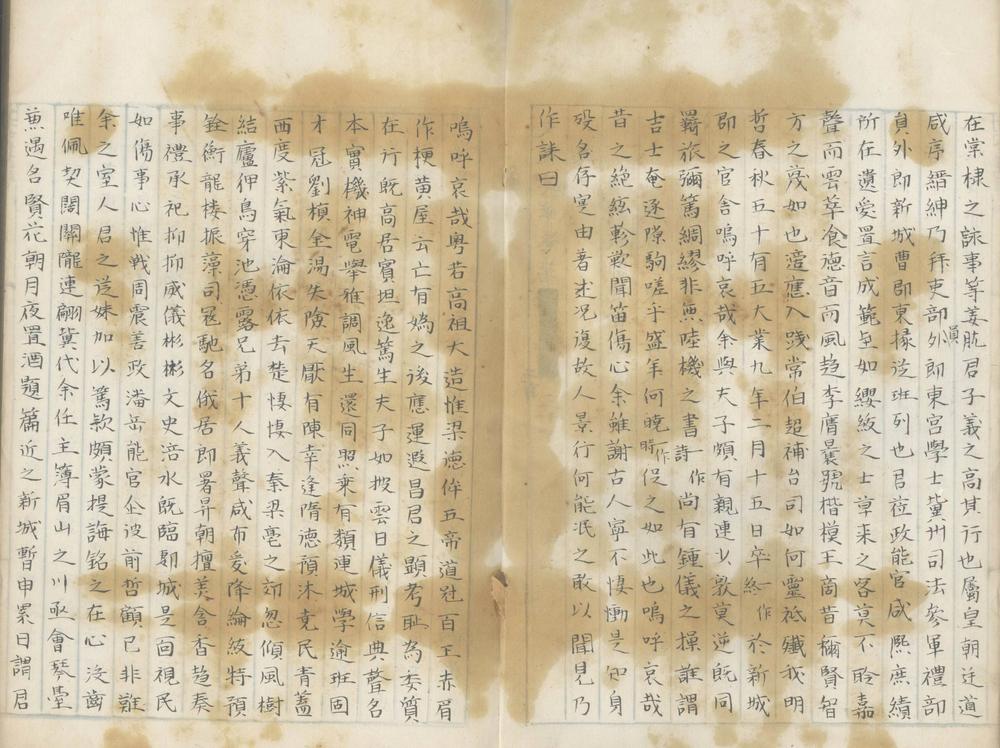 在棠棣之詠事等姜肱君子義之高其行也屬皇朝迁道
咸亭縉紳乃拜吏部員外郎東宮學士冀州司法參軍禮部
貟外郎新城曹郎東掾茫班列也君莅政能官咸熙庶績
所在遺愛置言成範至如纓紱之士草萊之客莫不聆嘉
聲而雲萃飡德音而風趍李膺曩號楷模王商昔稱賢智
方之蔑如也遵應入踐常伯超補台司如何靈祇殲我明
哲春秋五十有五大業九年二月十五日卒終作於新城
郡之官舍嗚呼哀哉余與夫子頗有親連少敦莫逆既同
羇旅彌篤綢繆非無陸機之書詩作尚有鍾儀之操誰謂
吉士奄逐隙駒嗟乎盛年何曉時作促之如此也嗚呼哀哉
昔之絶絃軫歎聞笛傷心余雖謝古人寧不悽慟是知身
歿名存寔由著述況復故人景行何能泯之敢以聞見乃
作誄曰
嗚呼哀哉粤若高祖大造惟梁德侔五帝道冠百王赤眉
作梗黄屋云亡有嬀之後應運遐昌君之顕考耻為委質
在于既高居賓坦逸篤生夫子如披雲日儀刑信典聲名
本實機神電舉雅調風生還同照乗有類連城學逾班固
才冠劉楨金湯失險天厭有陳幸逢隋德預沐堯民青蓋
西度紫氣東淪依依去楚悽悽入秦梁亳之郊忽傾風樹
結廬狎鳥穿池憑露兄弟十人義聲咸布爰降綸紱特預
銓衡龍楼振藻司冦馳名俄居郎署昇朝擅美含香趍奏
事禮承祀抑抑威儀彬彬文史涪水既臨郪城是面視民
如傷事心惟戰周震善政潘岳能官企彼前哲顧已非難
余之室人君之茫妹加以篤欵頗蒙提誨銘之在心沒齒
唯佩契闊關隴連翩冀代余任主簿眉山之川亟會琴臺
蕪遇名賢花朝月夜置酒題篇近之新城暫申累日謂君